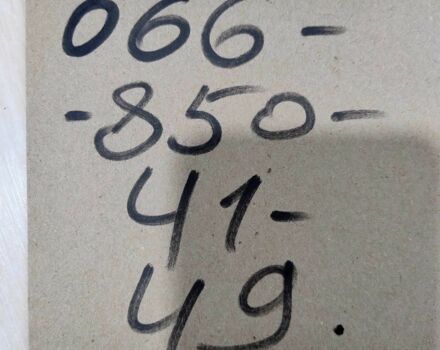 066-
-850-
41-
49.